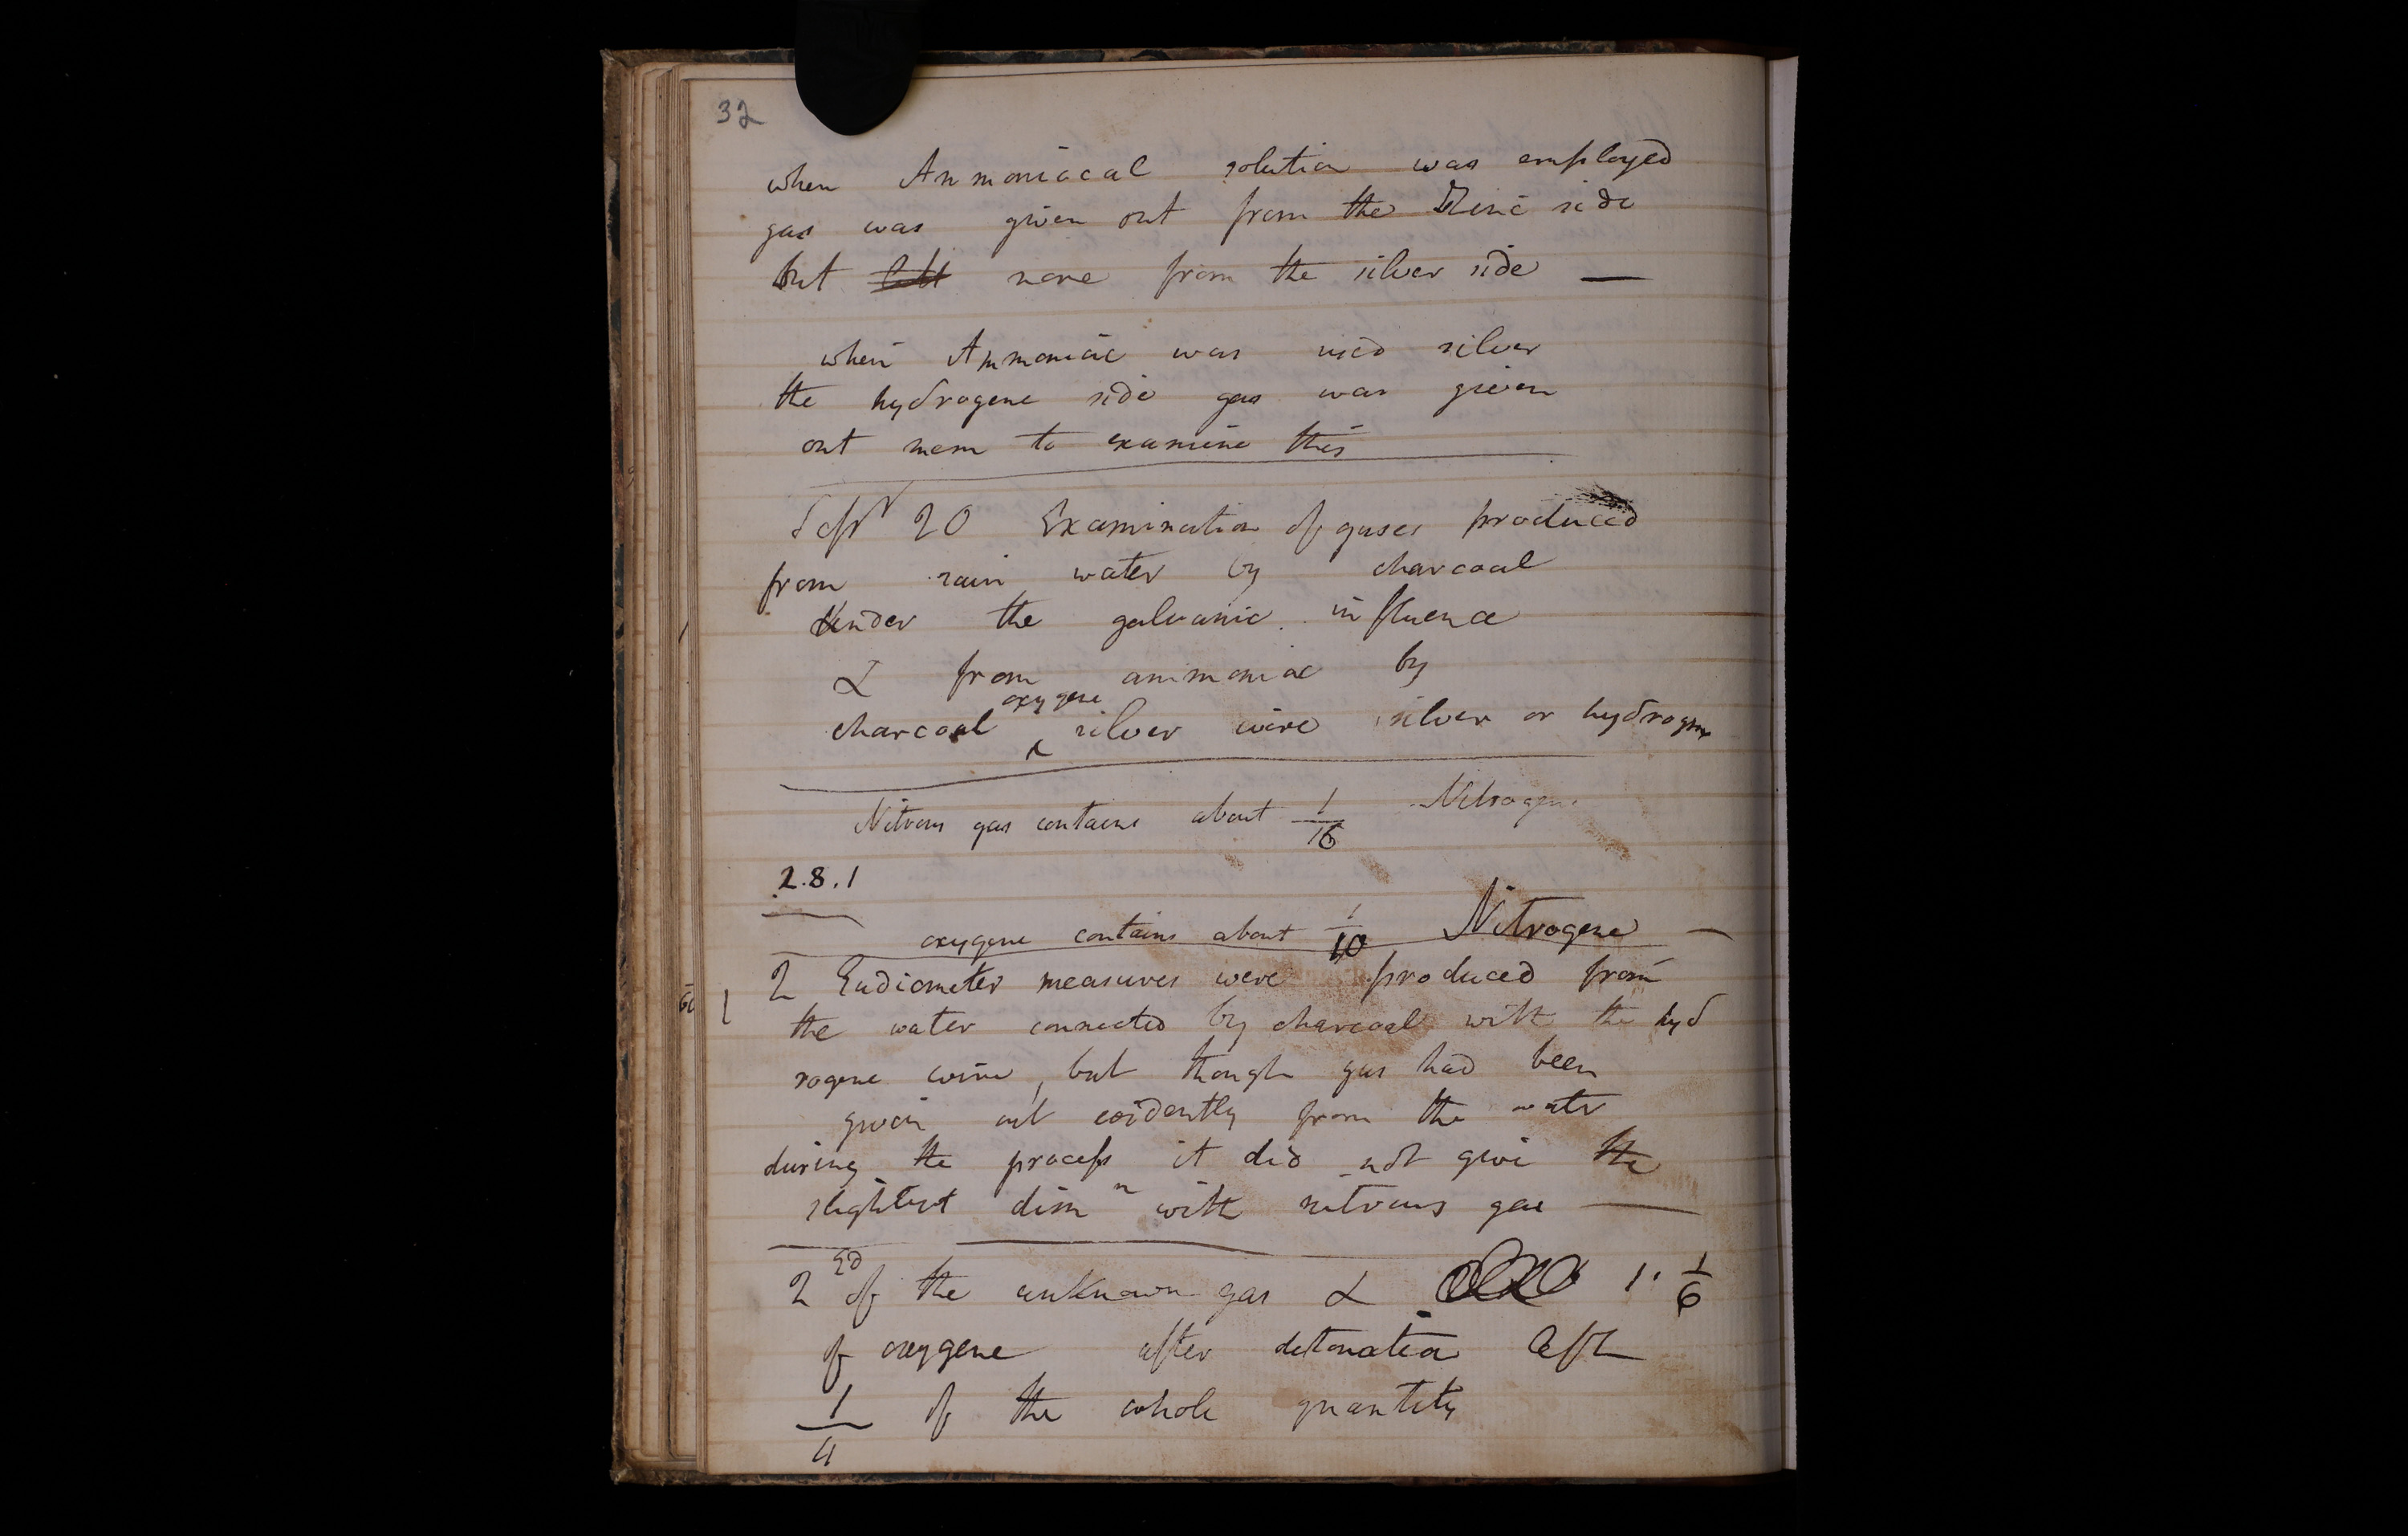 32
when Ammoniacal solution was employed
gas was given out from the Zinc side
but none from the silver side —
when Ammoniac was used silver
the hydrogene side gas was given
out mem to examine this
Septr 20 Examination of gases produced
from rain water by charcoal
Under the galvanic influence
& from ammoniac by
oxygene
charcoal ^ silver wire silver or hydrogene
Nitrous gas contains about 1/16 Nitrogene
2.8.1
oxygene contains about 1/10 Nitrogene —
2 Eudiometer measures were produced from
the water connected by charcoal with the hyd
rogene wire, but though gas had been
given out evidently from the water
during the process it did not give the
slightest dimn with nitrous gas —
2 of the unknown gas & 1. 1/6
of oxygene after detonation left
1/4 of the whole quantity